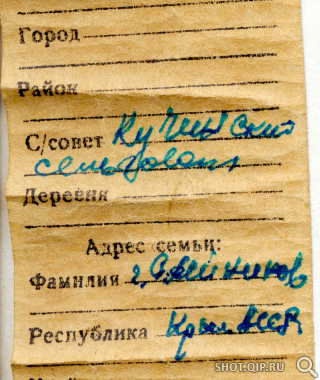 Город
Район
С/совет Кучинский
сельсовет
Деревня
Адрес семьи:
Фамилия г.
Республика Крым АССР
SHOT.QIP.RU